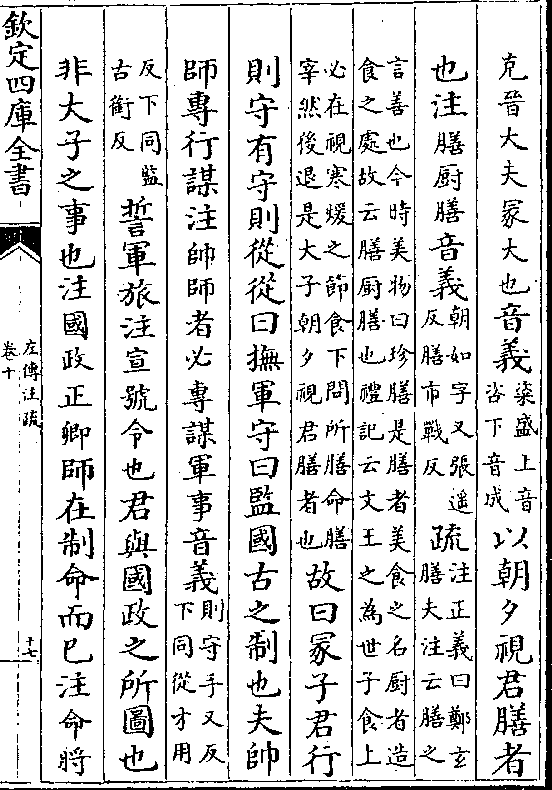 克晉大夫冢大也音義粢盛上音
咨下音成以朝夕視君膳者
也注膳厨膳音義朝如字又張遥
反膳市戰反疏注正義曰鄭玄
膳夫注云膳之
言善也今時美物曰珍膳是膳者美食之名厨者造
食之處故云膳厨膳也禮記云文王之為世子食上
必在視寒煖之節食下問所膳命膳
宰然後退是大子朝夕視君膳者也故曰冢子君行
則守有守則從從曰撫軍守曰監國古之制也夫帥
師專行謀注帥師者必專謀軍事音義則守手又反
下同從才用
反下同監
古銜反誓軍旅注宣號令也君與國政之所圖也
非大子之事也注國政正卿師在制命而已注命將
欽定四庫全書
左傳注疏
卷十
十七